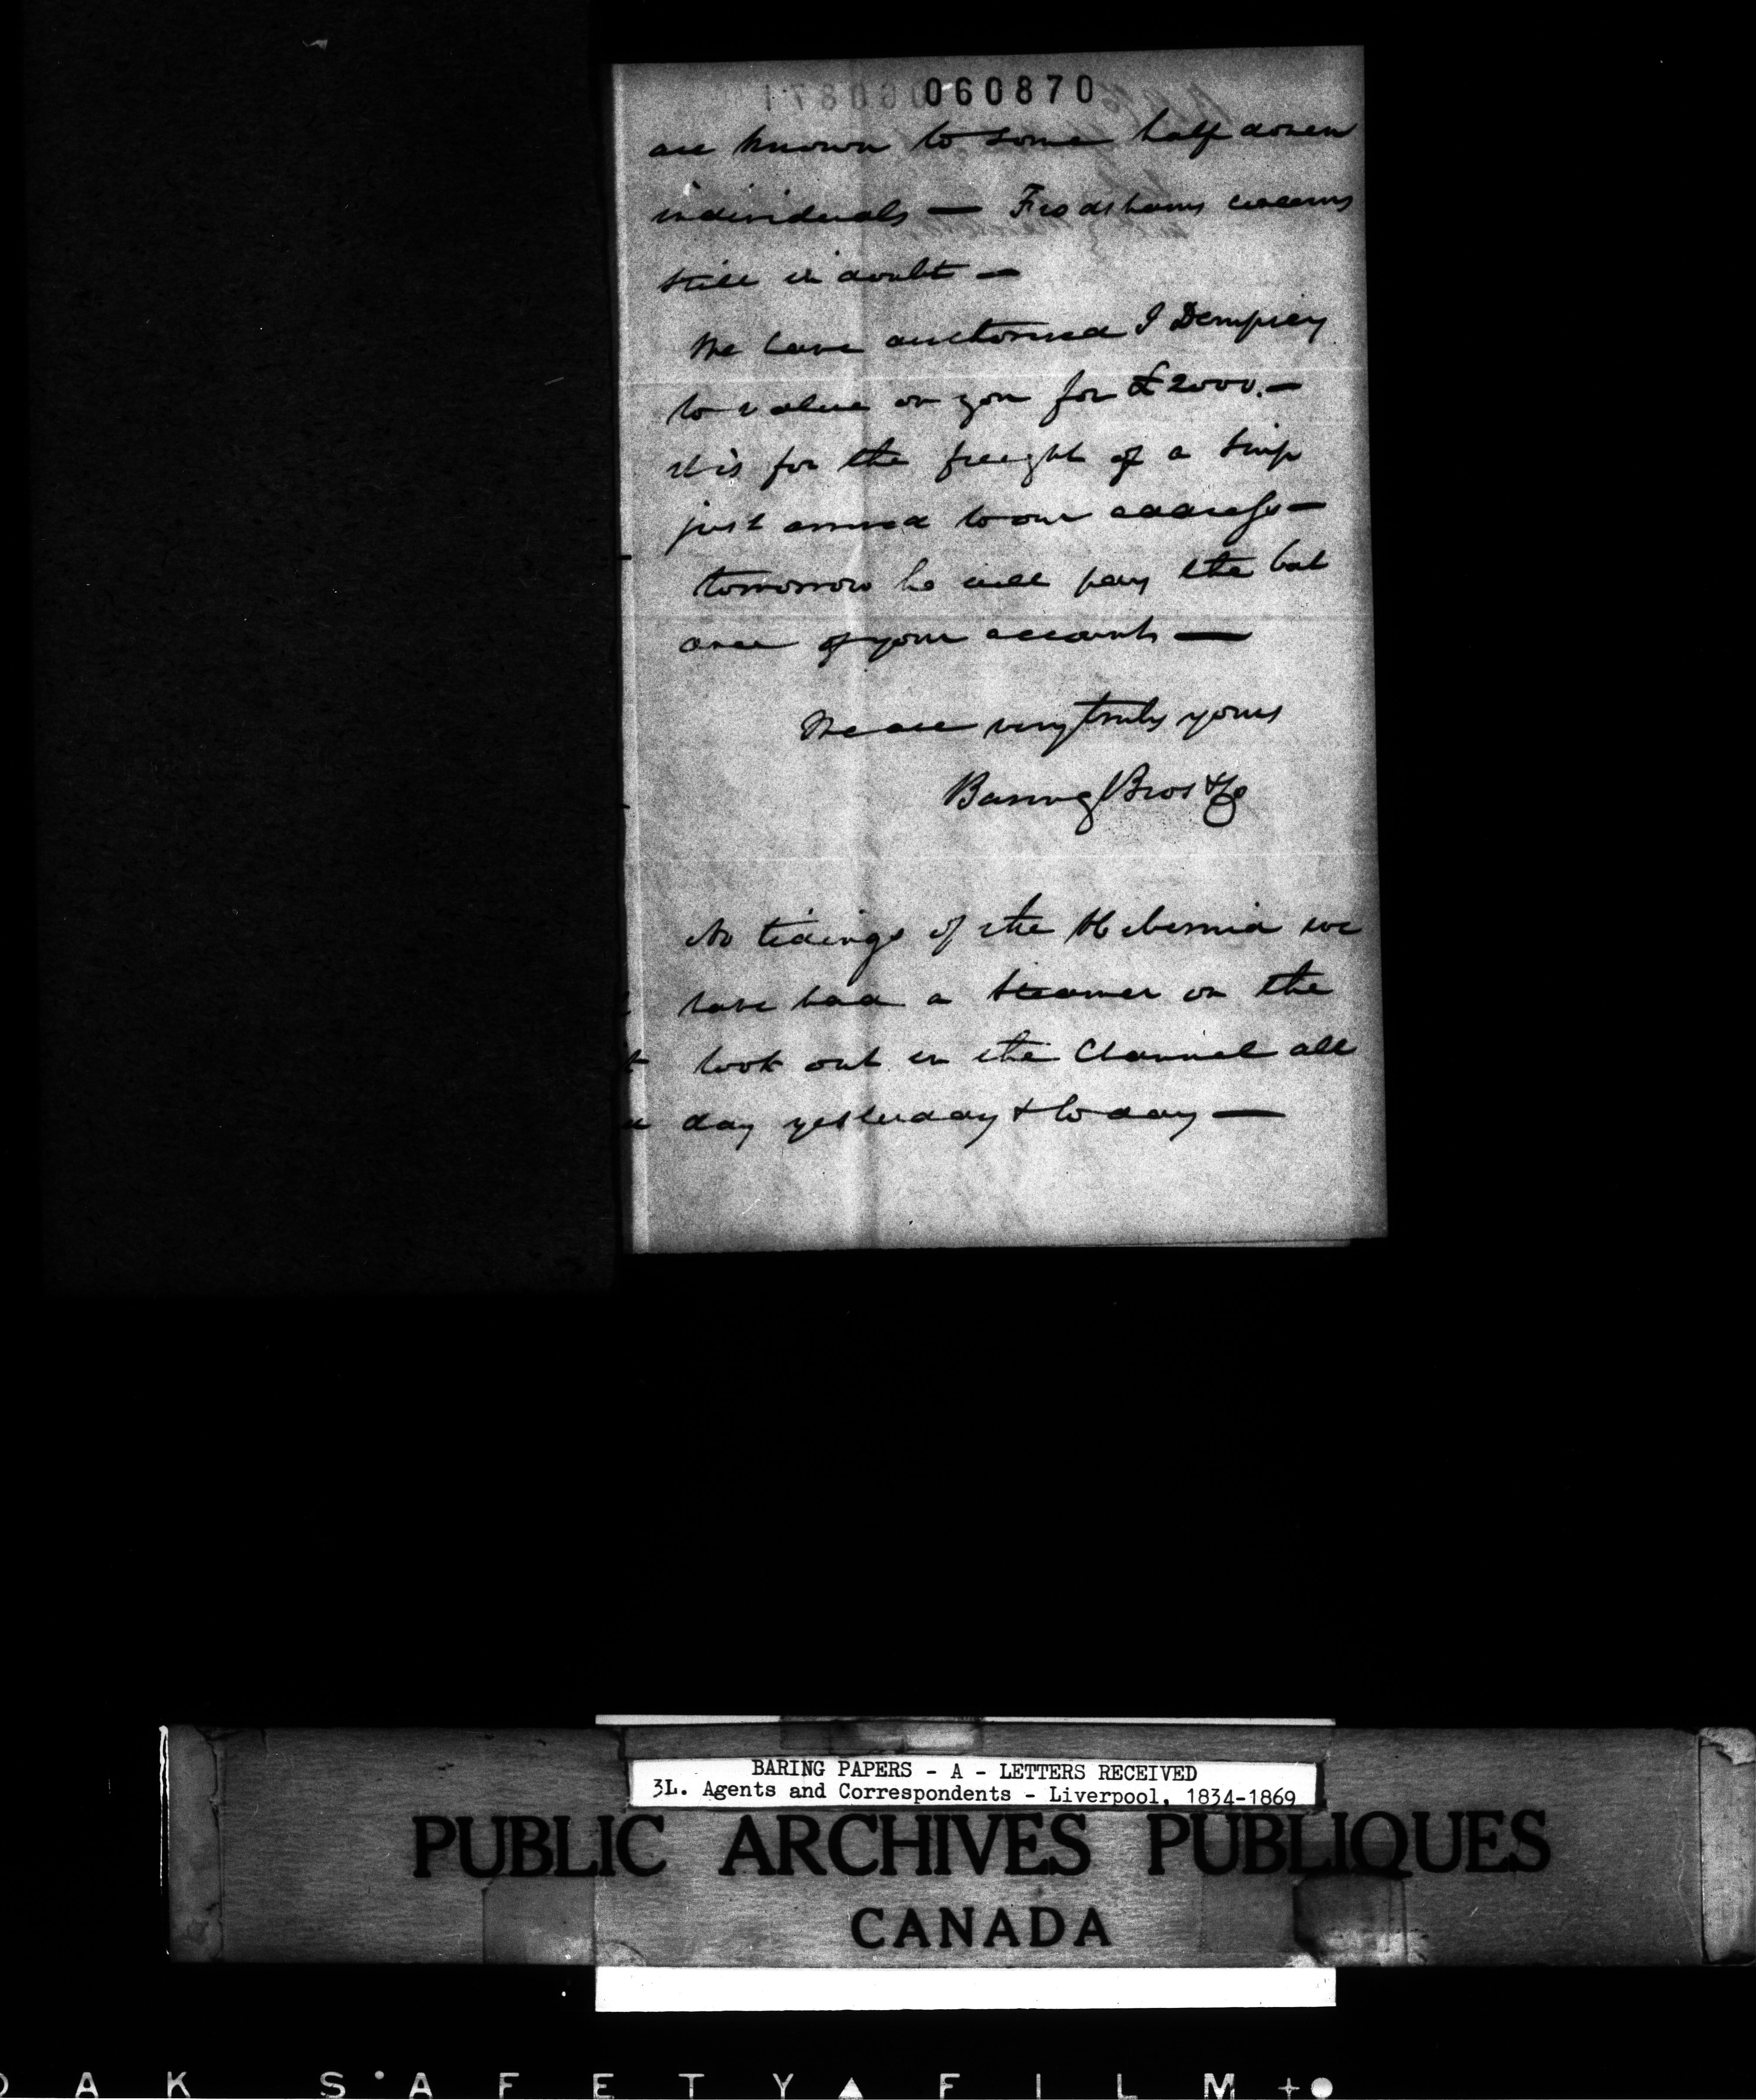 060870
are known to some half dozen
individuals — Frodshams concerns
still in doubt —
We have authorised J Dempsey
to value on you for £2000. —
it is for the freight of a Ship
just arrived to our address —
tomorrow he will pay the bal
ance of your account —
We are very truly yours
Baring Bros & Co
No tidings of the Hibernia we
have had a Steamer on the
look out in the Channel all
day yesterday & to day —
BARING PAPERS - A - LETTERS RECEIVED
3L. Agents and Correspondents - Liverpool, 1834-1869
PUBLIC ARCHIVES PUBLIQUES
CANADA
DAK S'AFETY▲FILM+●